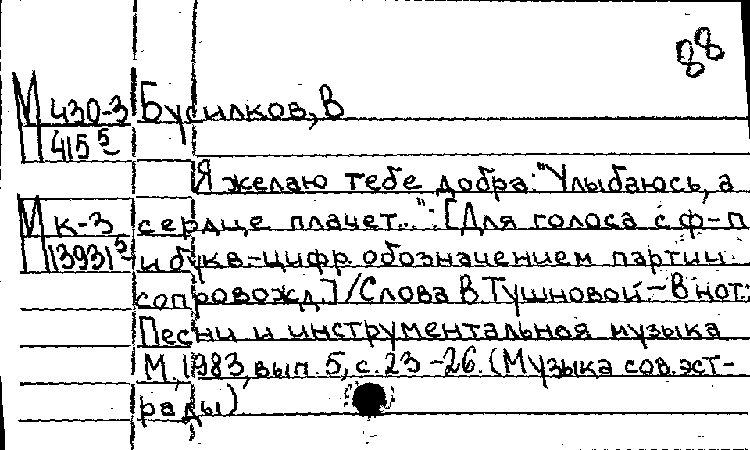 88
М 430-3 Бусилков, В
415 5
Я желаю тебе добра: "Улыбаюсь, а
М к-3 сердце плачет...": [Для голоса с ф-п
13931 5 и букв.-цифр. обозначением партии
сопровожд.] / Слова В. Тушновой. - В нот.:
Песни и инструментальная музыка
М., 1983, вып. 5, с. 23-26. (Музыка сов. эст-
рады)